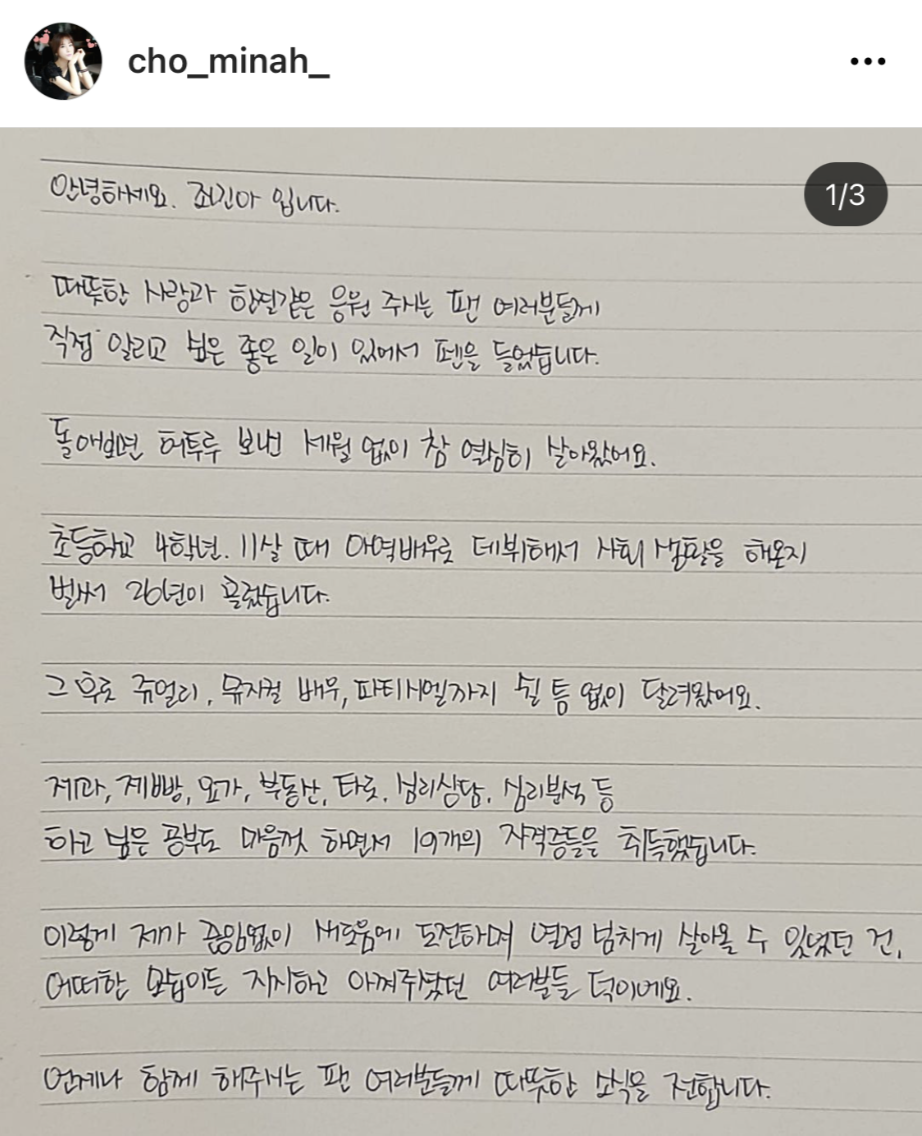 cho_minah_
1/3
안녕하세요. 조민아 입니다.
따뜻한 사랑과 한결같은 응원 주시는 팬 여러분들께
직접 알리고 싶은 좋은 일이 있어서 펜을 들었습니다.
돌아보면 허투루 보낸 세월 없이 참 열심히 살아왔어요.
초등학교 4학년. 11살 때 아역배우로 데뷔해서 사회 생활을 해온지
벌써 26년이 흘렀습니다.
그 후로 쥬얼리, 뮤지컬 배우, 파티시엘까지 쉴 틈 없이 달려왔어요.
제과, 제빵, 요가, 부동산, 타로, 심리상담, 심리분석 등
하고 싶은 공부도 마음껏 하면서 19개의 자격증들을 취득했습니다.
이렇게 제가 끊임없이 새로움에 도전하며 열정 넘치게 살아올 수 있었던 건,
어떠한 모습이든 지지하고 아껴주셨던 여러분들 덕이에요.
언제나 함께 해주시는 팬 여러분들께 따뜻한 소식을 전합니다.